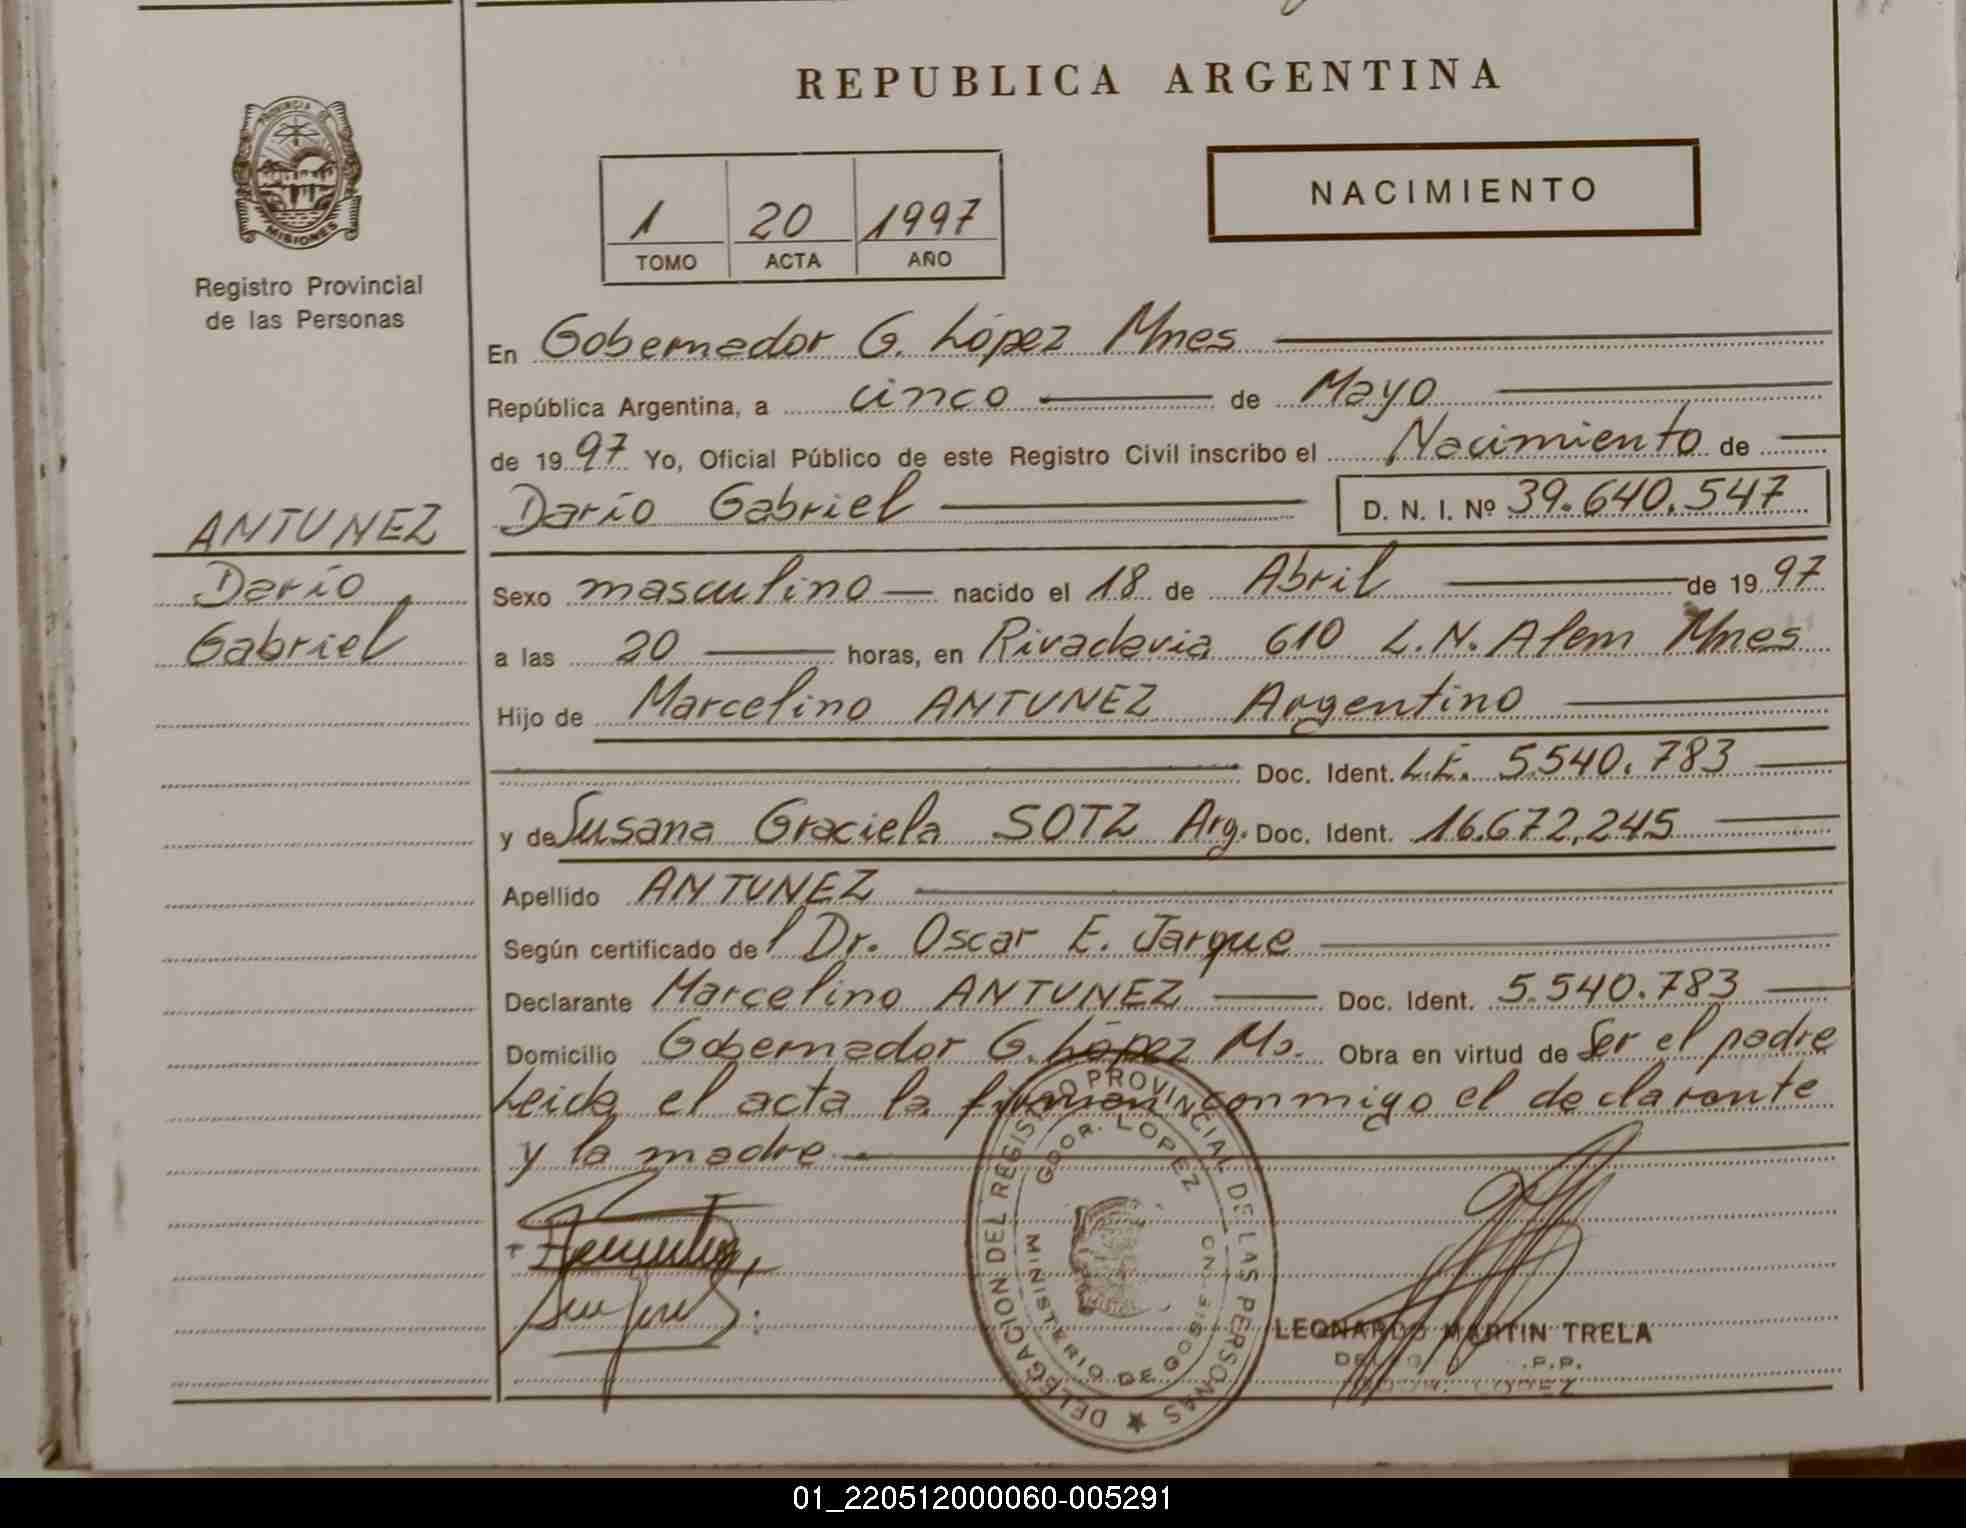 REPUBLICA ARGENTINA
PROVINCIA DE
MISIONES
Registro Provincial
de las Personas
1 20 1997
TOMO ACTA AÑO
NACIMIENTO
En Gobernador G. López Mnes
República Argentina, a cinco de Mayo
de 1997 Yo, Oficial Público de este Registro Civil inscribo el Nacimiento de
Darío Gabriel D. N. I. Nº 39.640.547
ANTUNEZ
Darío
Gabriel
Sexo masculino nacido el 18 de Abril de 1997
a las 20 horas, en Rivadavia 610 L.N. Alem Mnes
Hijo de Marcelino ANTUNEZ Argentino
Doc. Ident. L.E. 5.540.783
y de Susana Graciela SOTZ Arg. Doc. Ident. 16.672.245
Apellido ANTUNEZ
Según certificado del Dr. Oscar E. Jarque
Declarante Marcelino ANTUNEZ Doc. Ident. 5.540.783
Domicilio Gobernador G. López Ms. Obra en virtud de Ser el padre
Leida el acta la firman conmigo el declarante
y la madre
DELEGACION DEL REGISTRO PROVINCIAL DE LAS PERSONAS
GDOR. LOPEZ
MINISTERIO DE GOBIERNO
LEONARDO MARTIN TRELA
GDOR. LOPEZ
01_220512000060-005291